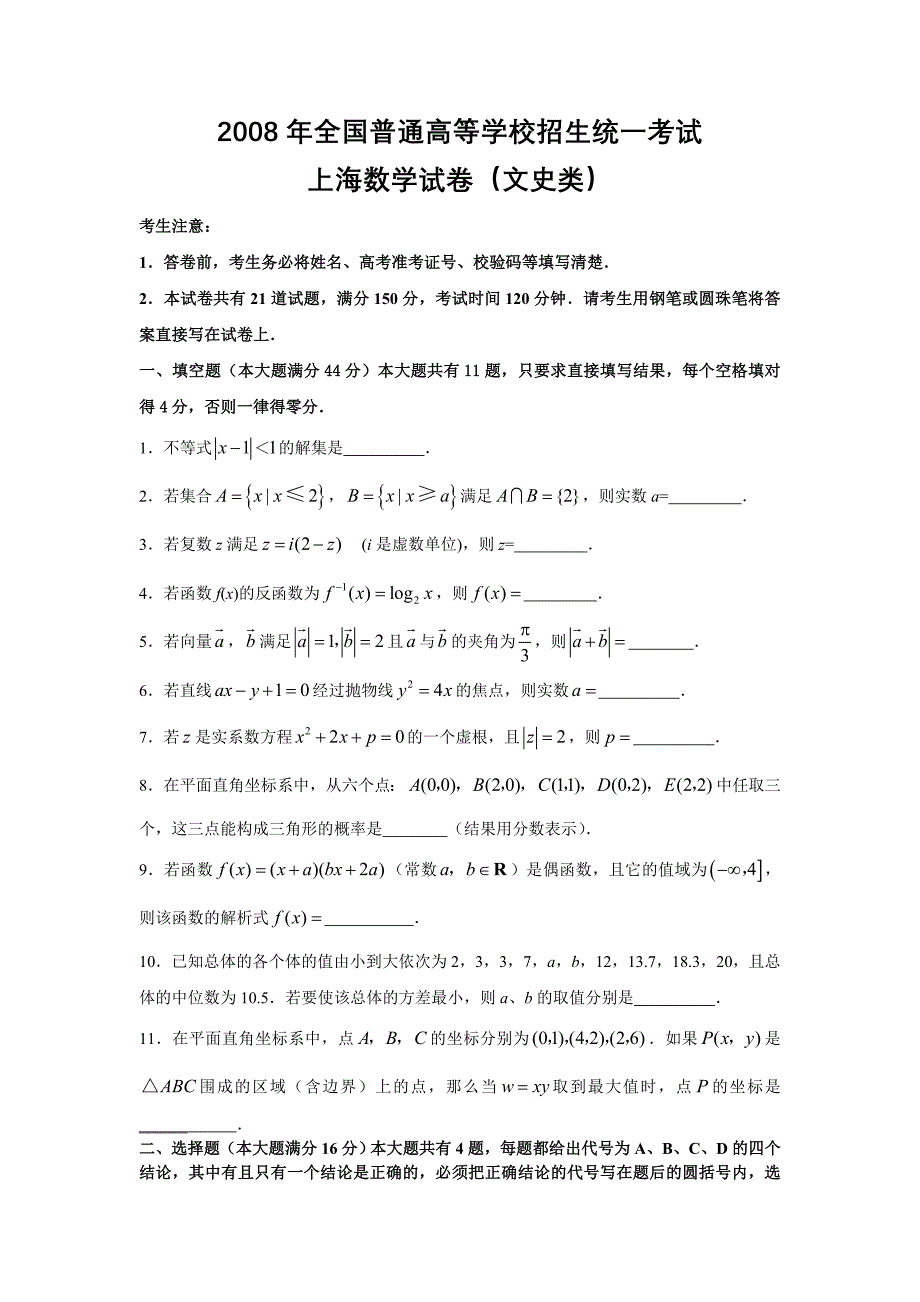 2008 年全国普通高等学校招生统一考试
上海数学试卷（文史类）
考生注意：
1．答卷前，考生务必将姓名、高考准考证号、校验码等填写清楚．
2．本试卷共有 21 道试题，满分 150 分，考试时间 120 分钟．请考生用钢笔或圆珠笔将答
案直接写在试卷上．
一、填空题（本大题满分 44 分）本大题共有 11 题，只要求直接填写结果，每个空格填对
得 4 分，否则一律得零分．
1．不等式|x−1|<1的解集是__________．
2．若集合 A={x|x≤2}，B={x|x≥a}满足 A∩B={2}，则实数 a=_________．
3．若复数 z 满足 z=i(2−z) (i 是虚数单位)，则 z=_________．
4．若函数 f(x)的反函数为 f⁻¹(x)=log₂x，则 f(x)=_________．
5．若向量 a⃗，b⃗ 满足|a⃗|=1，|b⃗|=2且 a⃗ 与 b⃗ 的夹角为π/3，则|a⃗+b⃗|=________．
6．若直线 ax−y+1=0 经过抛物线 y²=4x 的焦点，则实数 a=__________．
7．若 z 是实系数方程 x²+2x+p=0 的一个虚根，且|z|=2，则 p=__________．
8．在平面直角坐标系中，从六个点：A(0,0)，B(2,0)，C(1,1)，D(0,2)，E(2,2)中任取三
个，这三点能构成三角形的概率是________（结果用分数表示）．
9．若函数 f(x)=(x+a)(bx+2a)（常数 a，b∈R）是偶函数，且它的值域为(−∞,4]，
则该函数的解析式 f(x)=___________．
10．已知总体的各个体的值由小到大依次为 2，3，3，7，a，b，12，13.7，18.3，20，且总
体的中位数为 10.5．若要使该总体的方差最小，则 a、b 的取值分别是__________．
11．在平面直角坐标系中，点 A，B，C 的坐标分别为(0,1),(4,2),(2,6)．如果 P(x，y)是
△ABC 围成的区域（含边界）上的点，那么当 w=xy 取到最大值时，点 P 的坐标是
____________．
二、选择题（本大题满分 16 分）本大题共有 4 题，每题都给出代号为 A、B、C、D 的四个
结论，其中有且只有一个结论是正确的，必须把正确结论的代号写在题后的圆括号内，选